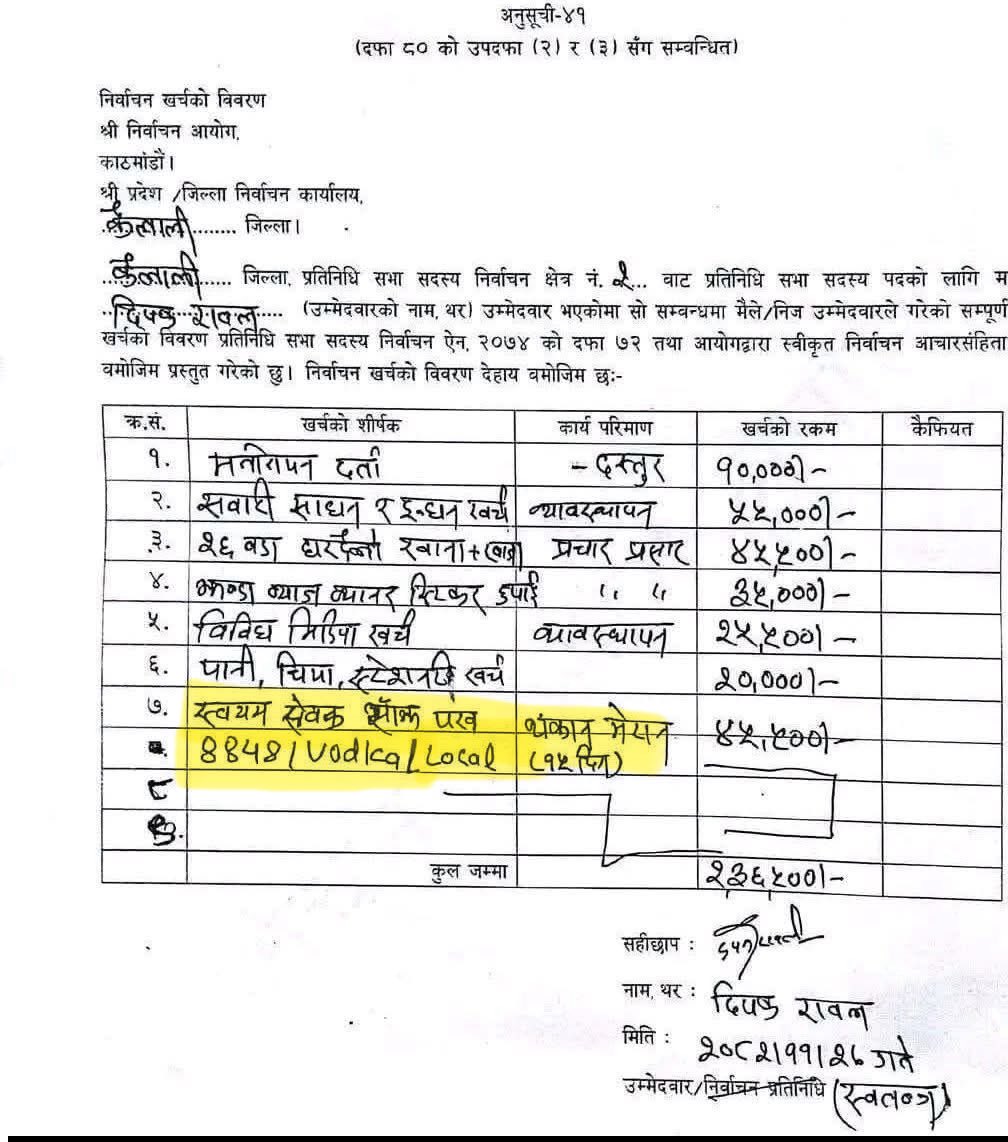 अनुसूची-४१
(दफा ८० को उपदफा (२) र (३) सँग सम्वन्धित)
निर्वाचन खर्चको विवरण
श्री निर्वाचन आयोग,
काठमांडौं।
श्री प्रदेश /जिल्ला निर्वाचन कार्यालय,
कैलाली........ जिल्ला।
कैलाली...... जिल्ला, प्रतिनिधि सभा सदस्य निर्वाचन क्षेत्र नं. २... वाट प्रतिनिधि सभा सदस्य पदको लागि म
दिपक रावल.... (उम्मेदवारको नाम, थर) उम्मेदवार भएकोमा सो सम्वन्धमा मैले/निज उम्मेदवारले गरेको सम्पूर्ण
खर्चको विवरण प्रतिनिधि सभा सदस्य निर्वाचन ऐन, २०७४ को दफा ७२ तथा आयोगद्वारा स्वीकृत निर्वाचन आचारसंहिता
वमोजिम प्रस्तुत गरेको छु। निर्वाचन खर्चको विवरण देहाय वमोजिम छः-
क्र.सं. खर्चको शीर्षक कार्य परिमाण खर्चको रकम कैफियत
१. मनोनयन दर्ता - दस्तुर १०,०००।-
२. सवारी साधन र इन्धन खर्च व्यावस्थापन ५५,०००।-
३. २६ वडा घरदैलो प्रचार प्रसार ४५,५००।-
४. झण्डा व्याज व्यानर स्टिकर छपाई " " ३५,०००।-
५. विविध मिडिया खर्च व्यावस्थापन २५,५००।-
६. पानी, चिया, स्टेशनरी खर्च २०,०००।-
७. स्वयम सेवक थकान मेटान ४५,५००।-
8848/Vodka/Local (१५ दिन)
८
९.
कुल जम्मा २३६,५००।-
सहीछाप :
नाम, थर : दिपक रावल
मिति : २०८२।११।२८ गते
उम्मेदवार/निर्वाचन प्रतिनिधि (स्वतन्त्र)